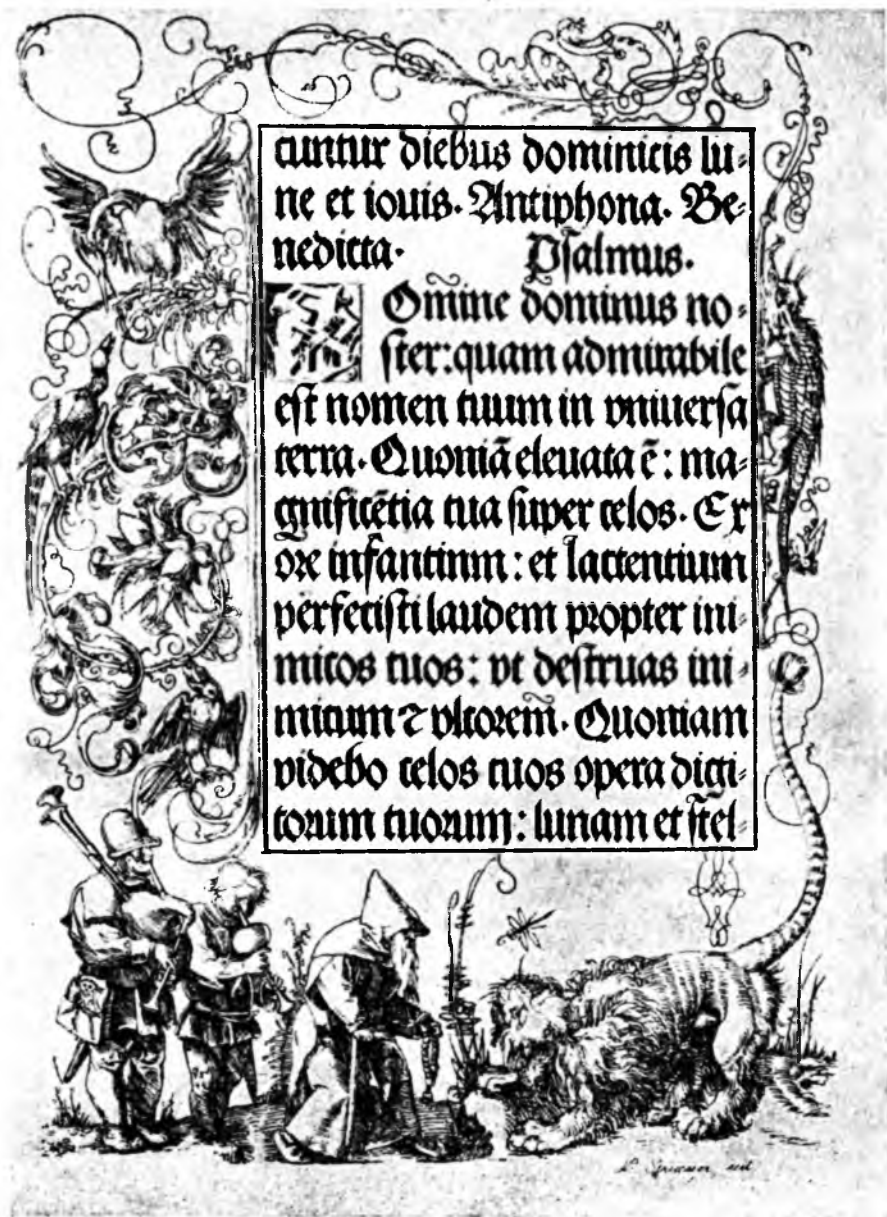 cuntur diebus dominicis lu⸗
ne et iouis. Antiphona. Be⸗
nedicta. Psalmus.
Omine dominus no⸗
ster: quam admirabile
est nomen tuum in vniuersa
terra. Quoniā eleuata ē: ma⸗
gnificētia tua super celos. Ex
ore infantinm: et lactentium
perfecisti laudem propter ini⸗
micos tuos: vt destruas ini⸗
micum ⁊ vltorem̄. Quoniam
videbo celos tuos opera digi⸗
torum tuorum: lunam et stel⸗